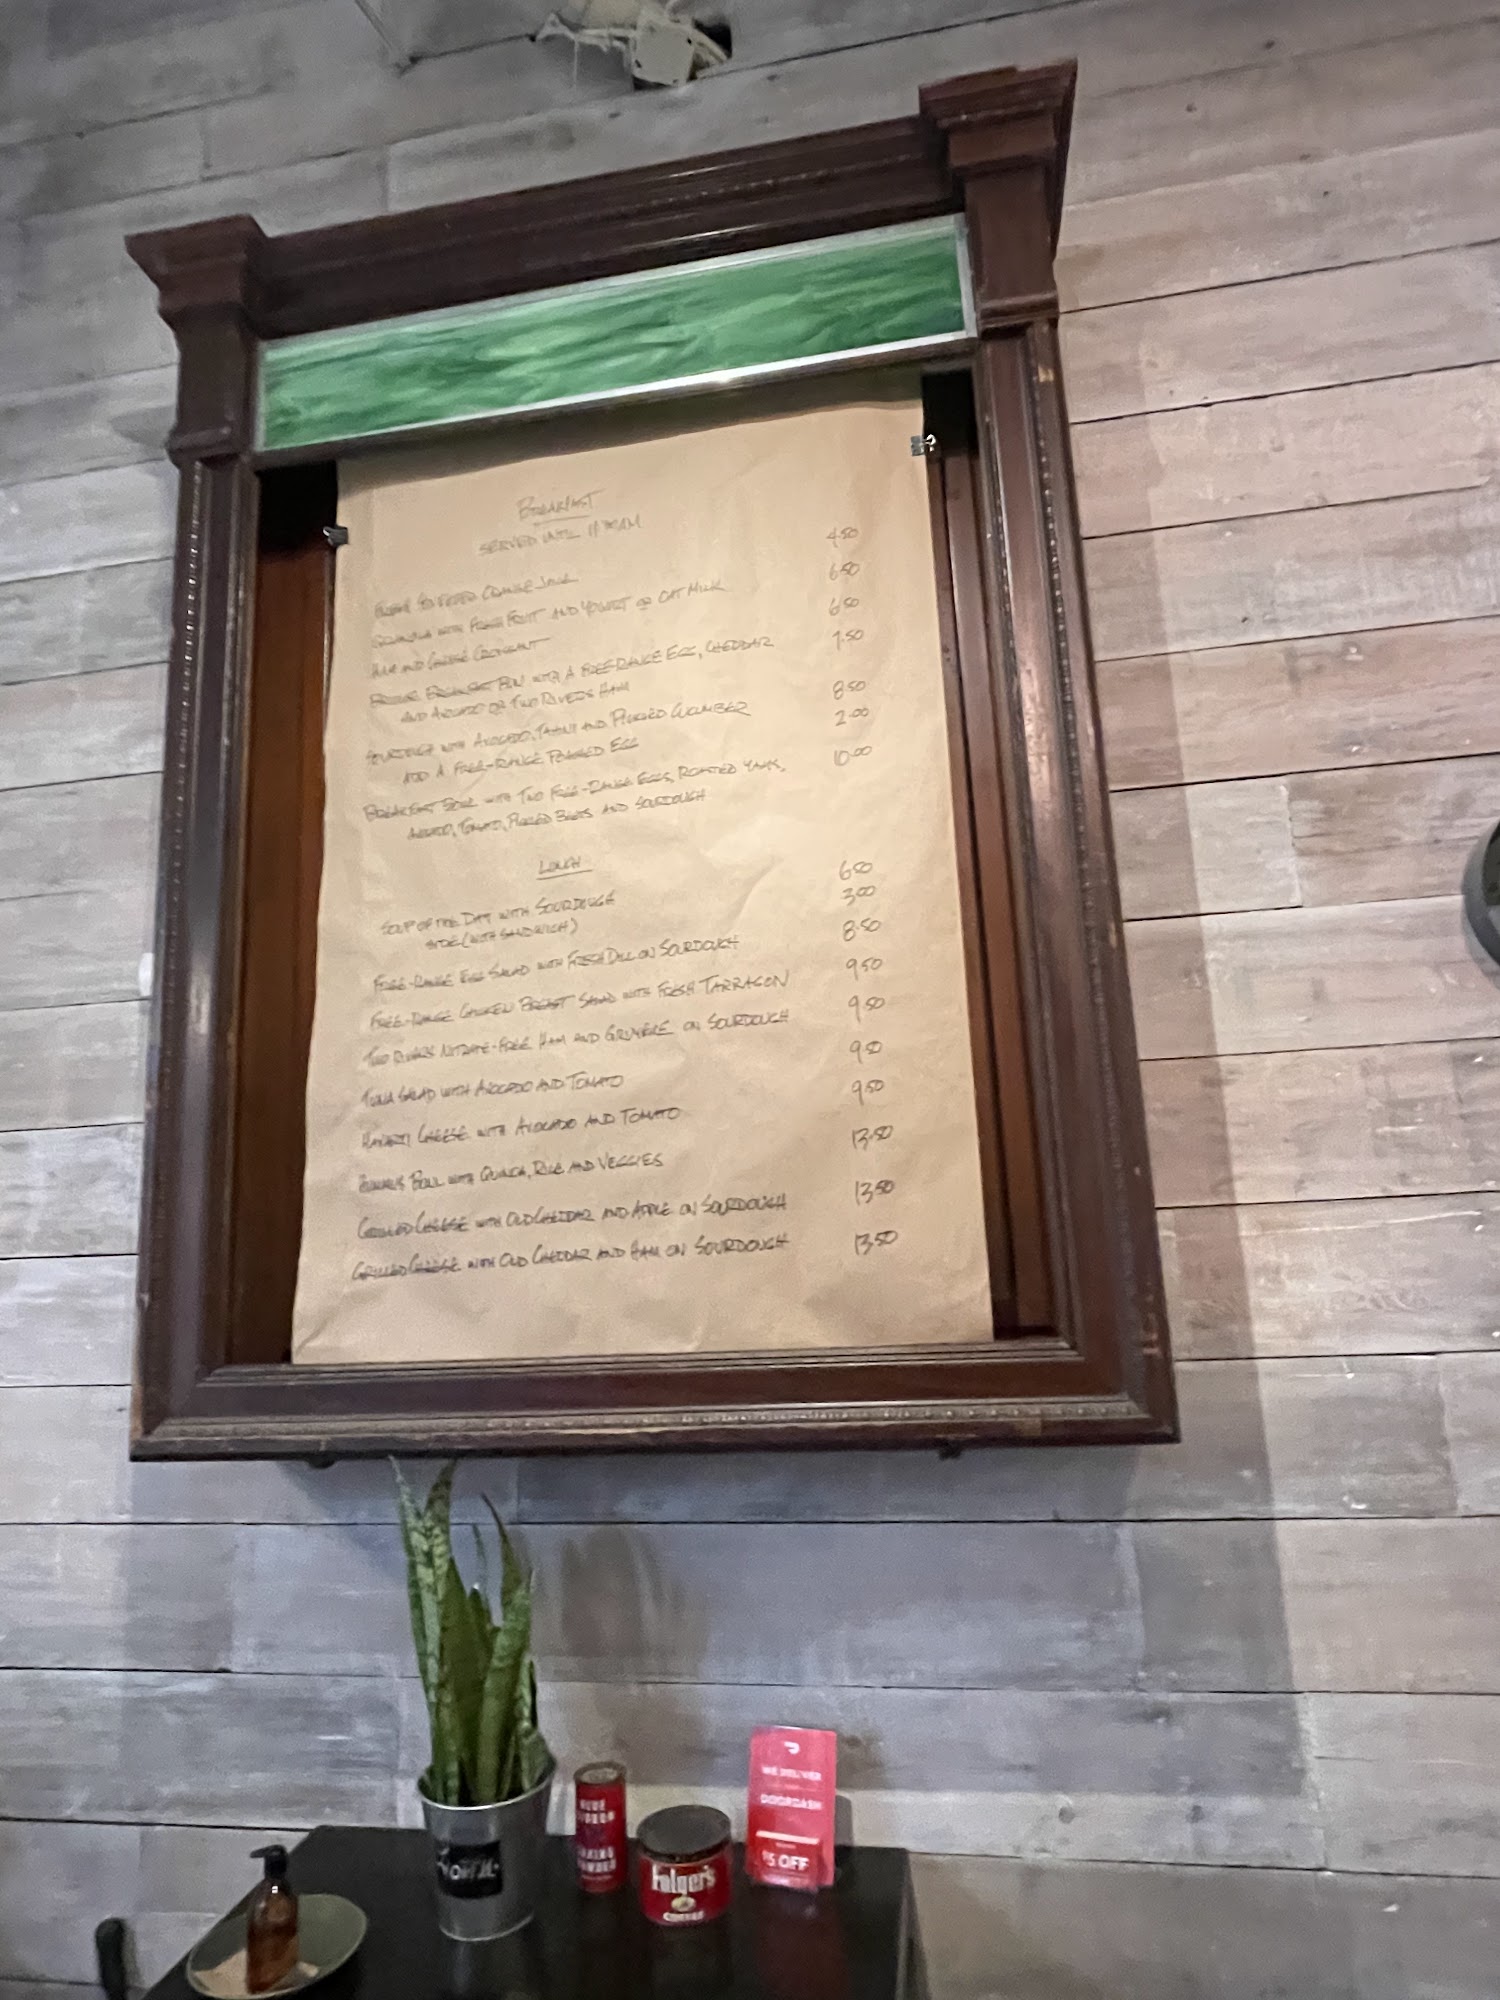 BREAKFAST
SERVED UNTIL 11
FRESH ORANGE JUICE 4.50
GRANOLA WITH FRESH FRUIT AND YOGURT OR OAT MILK 6.50
HAM AND CHEESE CROISSANT 6.50
BREAKFAST BUN WITH A FREE-RANGE EGG, CHEDDAR 7.50
AND AVOCADO OR TWO RIVERS HAM
SOURDOUGH WITH AVOCADO, TAHINI AND PICKLED CUCUMBER 8.50
ADD A FREE-RANGE POACHED EGG 2.00
BREAKFAST BOWL WITH TWO FREE-RANGE EGGS, ROASTED YAMS, 10.00
AVOCADO, TOMATO, PICKLED BEETS AND SOURDOUGH
LUNCH
SOUP OF THE DAY WITH SOURDOUGH 6.50
SIDE (WITH SANDWICH) 3.00
FREE-RANGE EGG SALAD WITH FRESH DILL ON SOURDOUGH 8.50
FREE-RANGE CHICKEN BREAST SALAD WITH FRESH TARRAGON 9.50
TWO RIVERS NITRATE-FREE HAM AND GRUYERE ON SOURDOUGH 9.50
TUNA SALAD WITH AVOCADO AND TOMATO 9.50
HAVARTI CHEESE WITH AVOCADO AND TOMATO 9.50
BOWL WITH QUINOA, RICE AND VEGGIES 13.50
GRILLED CHEESE WITH OLD CHEDDAR AND APPLE ON SOURDOUGH 13.50
GRILLED CHEESE WITH OLD CHEDDAR AND HAM ON SOURDOUGH 13.50
WE DELIVER
DOORDASH
$5 OFF
BAKING
POWDER
Folger's
COFFEE